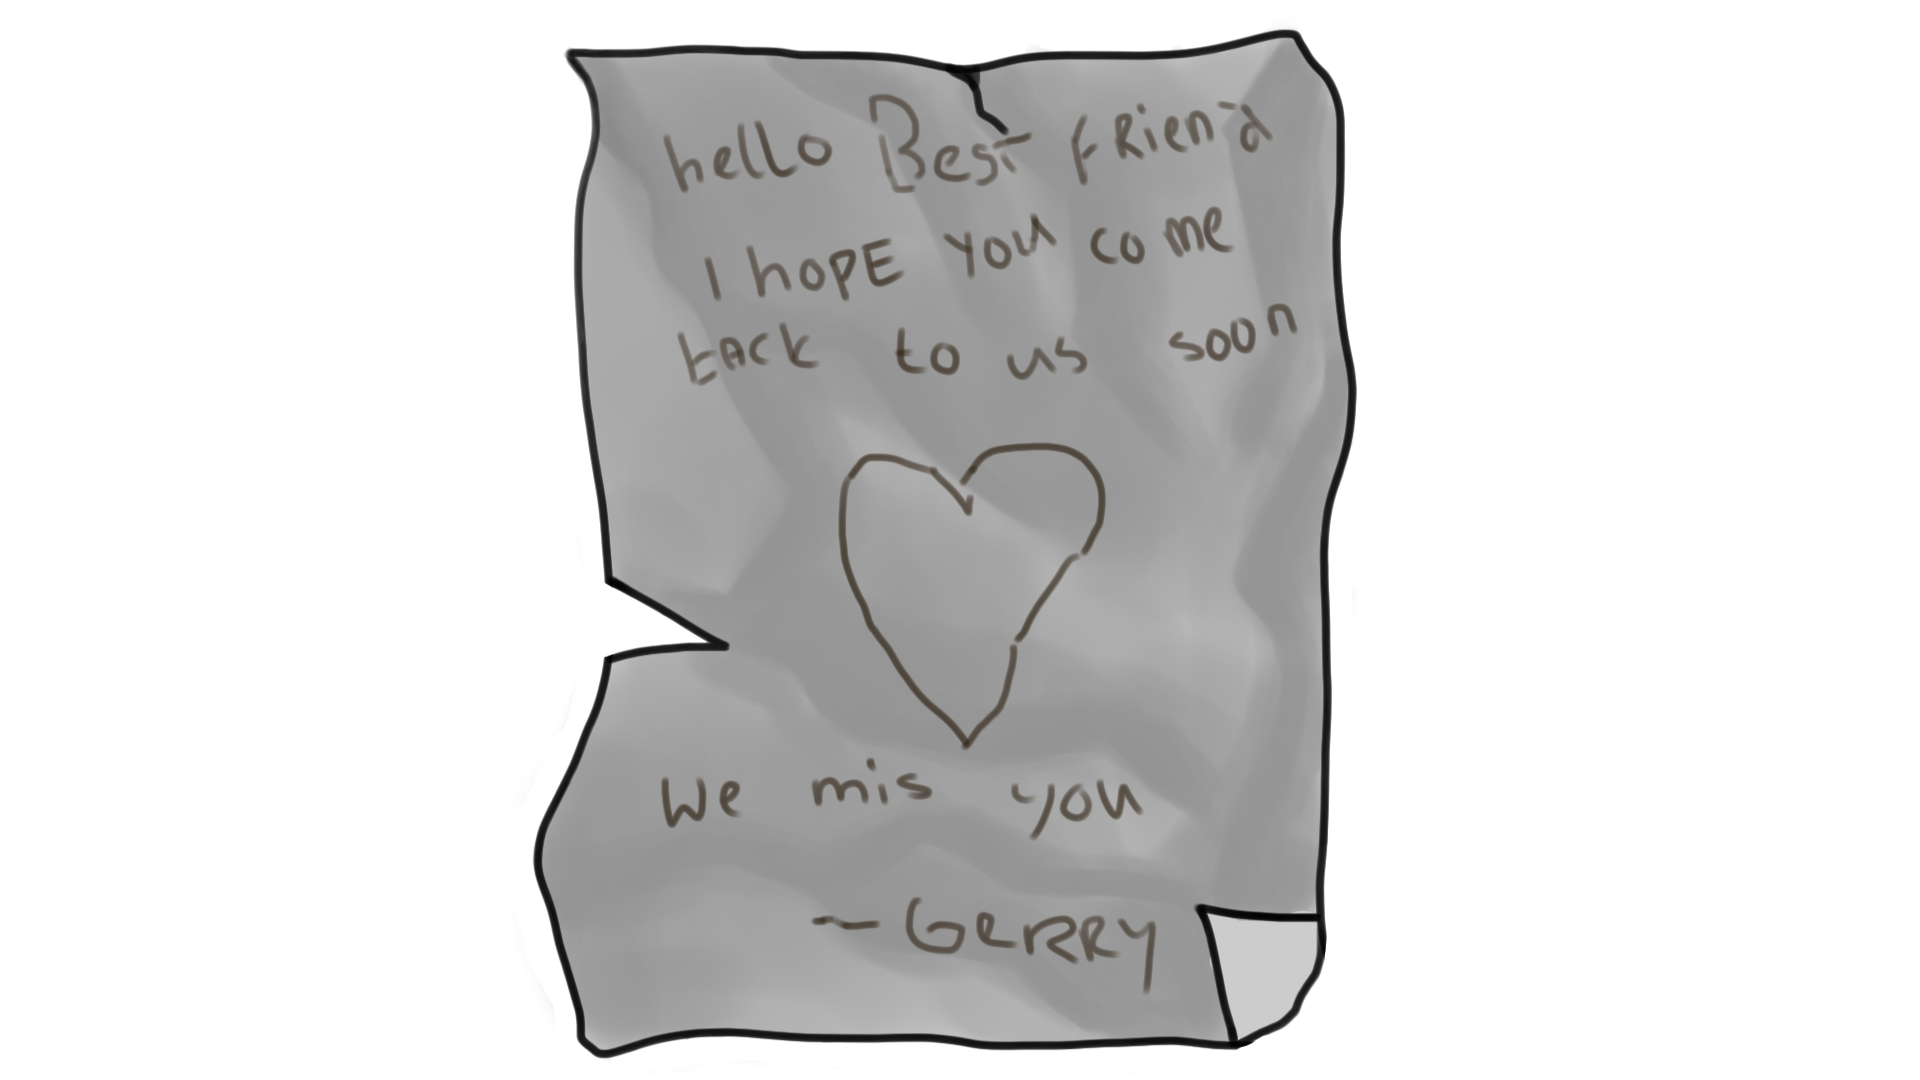 hello Best fRiend
I hopE you come
bAck to us soon
We mis you
~ GeRRY